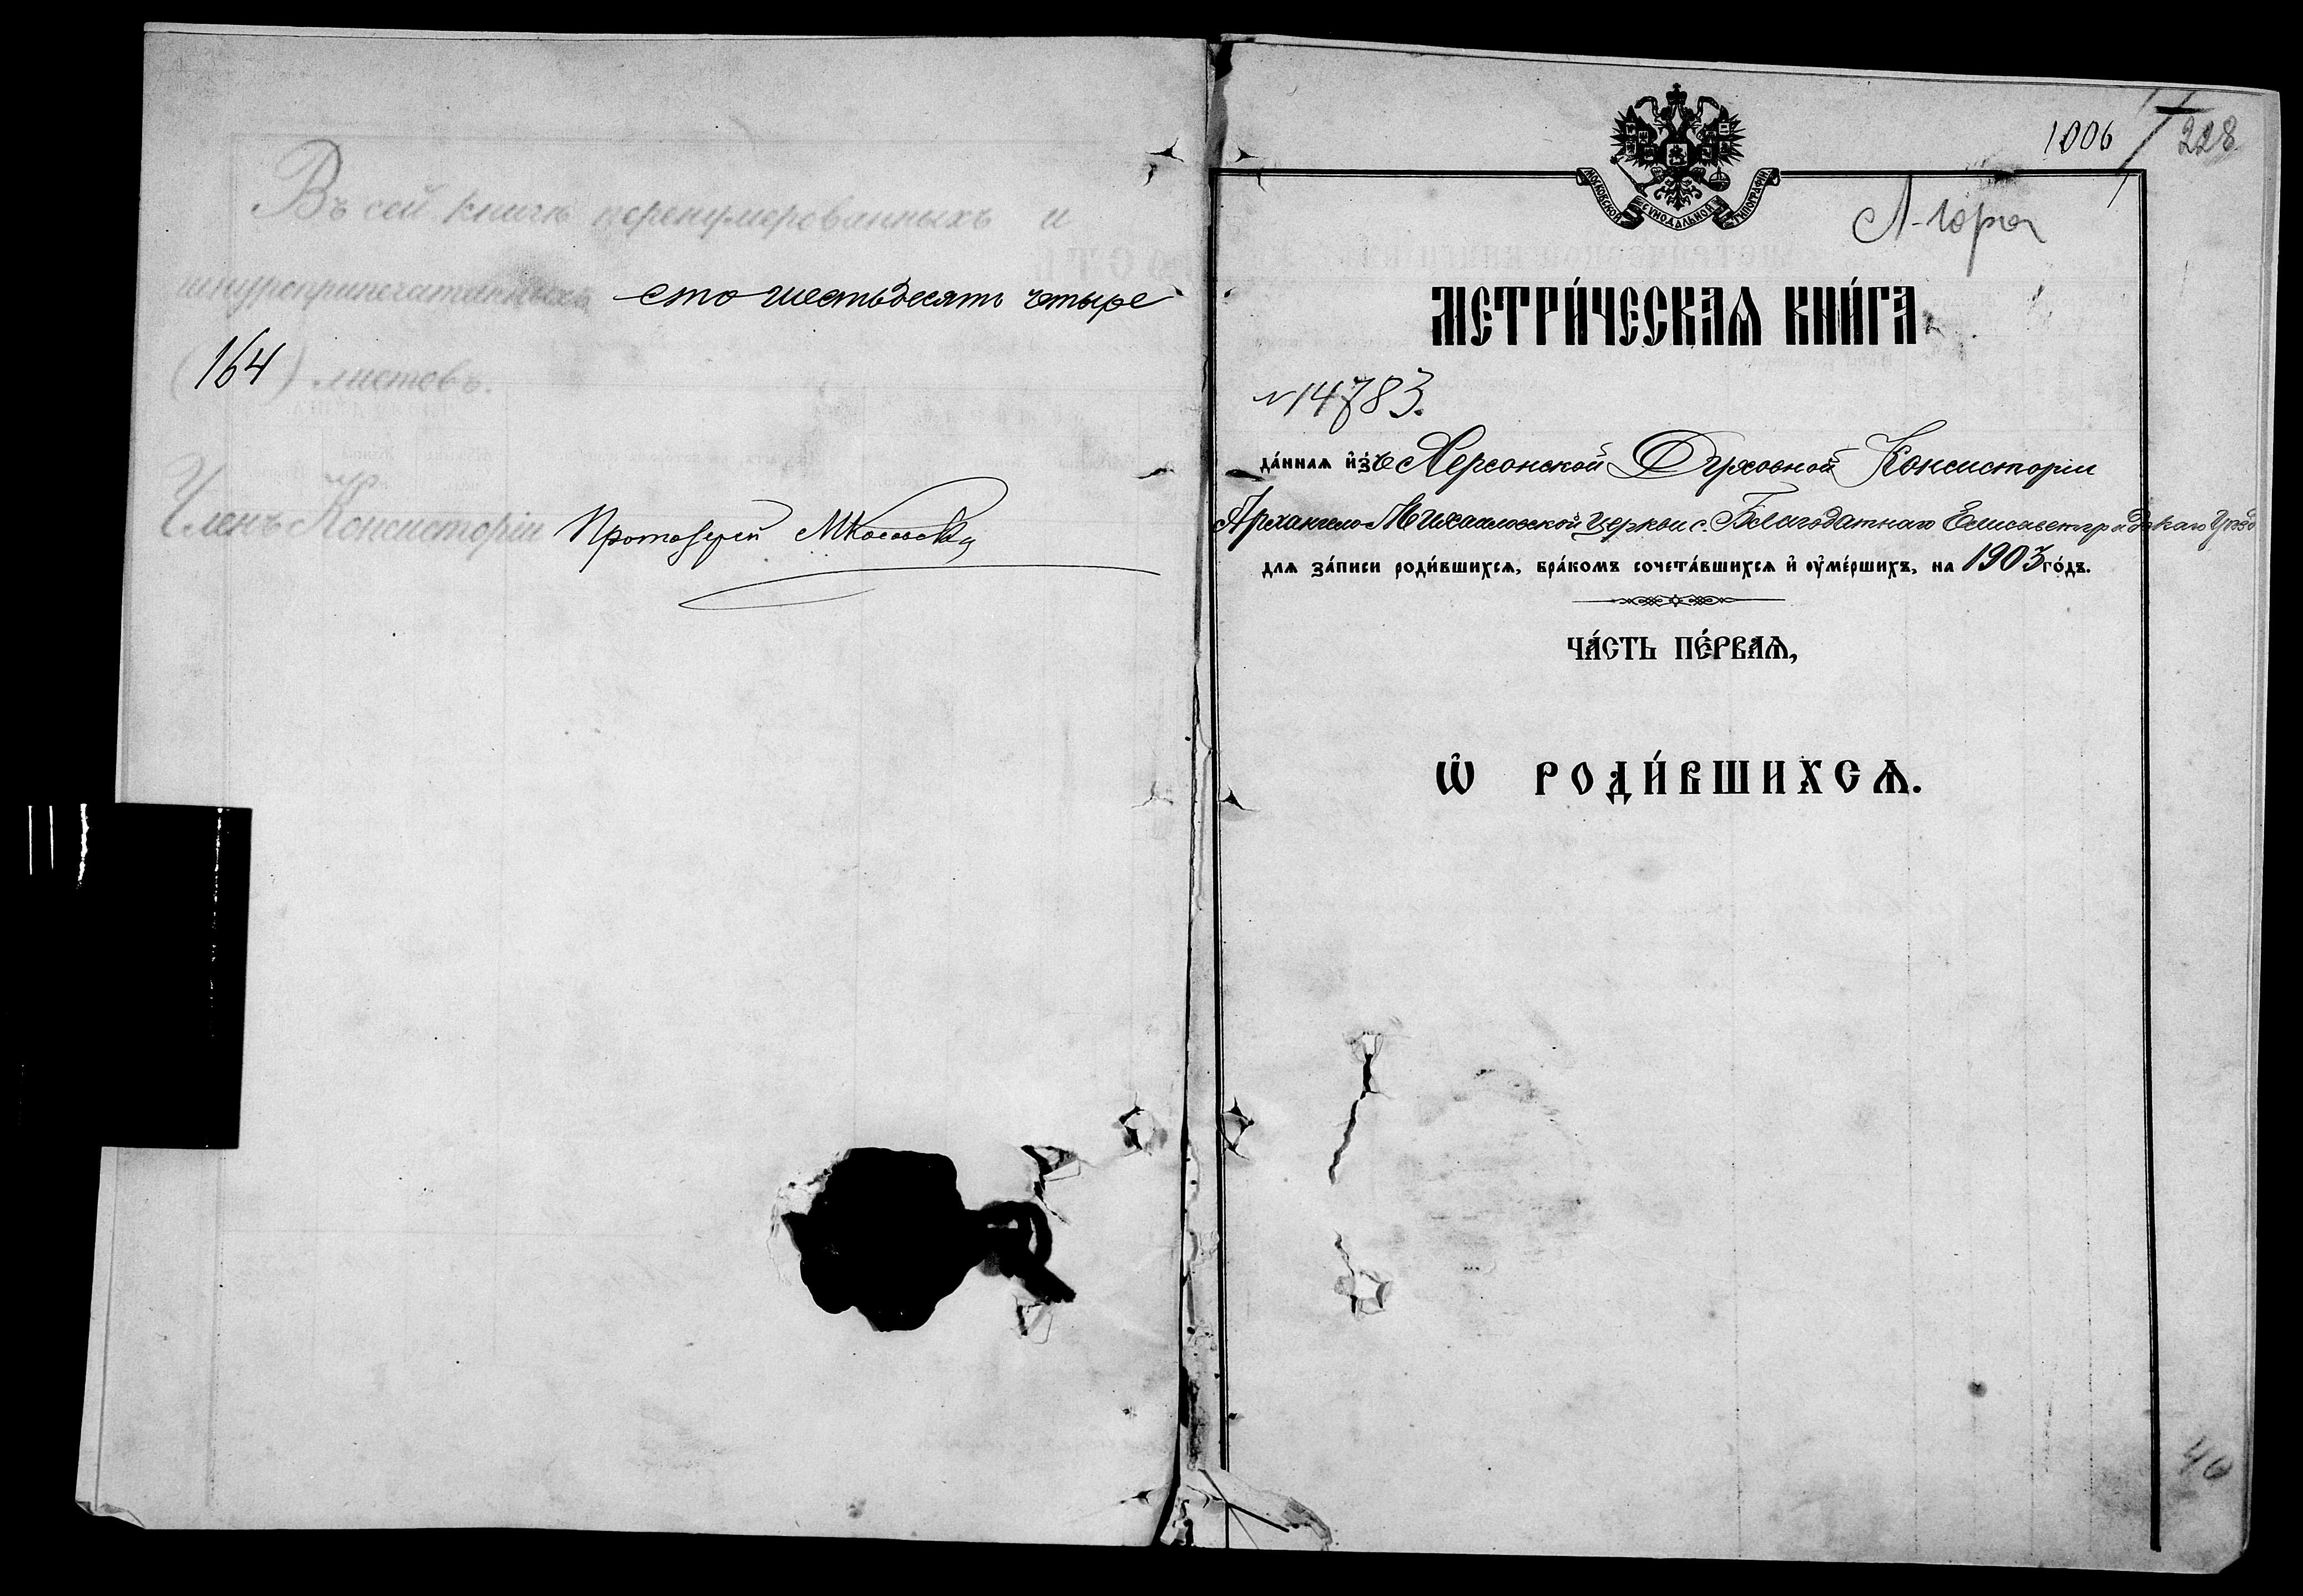 Въ сей книгѣ перенумерованныхъ и
шнуроприпечатанныхъ сто шестьдесятъ четыре
(164) листовъ.
Членъ Консисторіи Протоіерей
1006 228
МОСКОВСКОЙ СѴНОДАЛЬНОЙ ТИПОГРАФІИ
МЕТРИ́ЧЕСКАѦ КНИ́ГА
№ 14783.
да́ннаѧ и҆зъ Херсонской Духовной Консисторіи
Архангело-Михайловской церкви с. Благодатнаго Елисаветградскаго уѣзда
для за́писи роди́вшихсѧ, бра́комъ сочета́вшихсѧ и҆ оу҆ме́ршихъ, на 1903 го́дъ.
ЧА́СТЬ ПЕ́РВАѦ,
Ѡ҆ РОДИ́ВШИХСѦ.
40